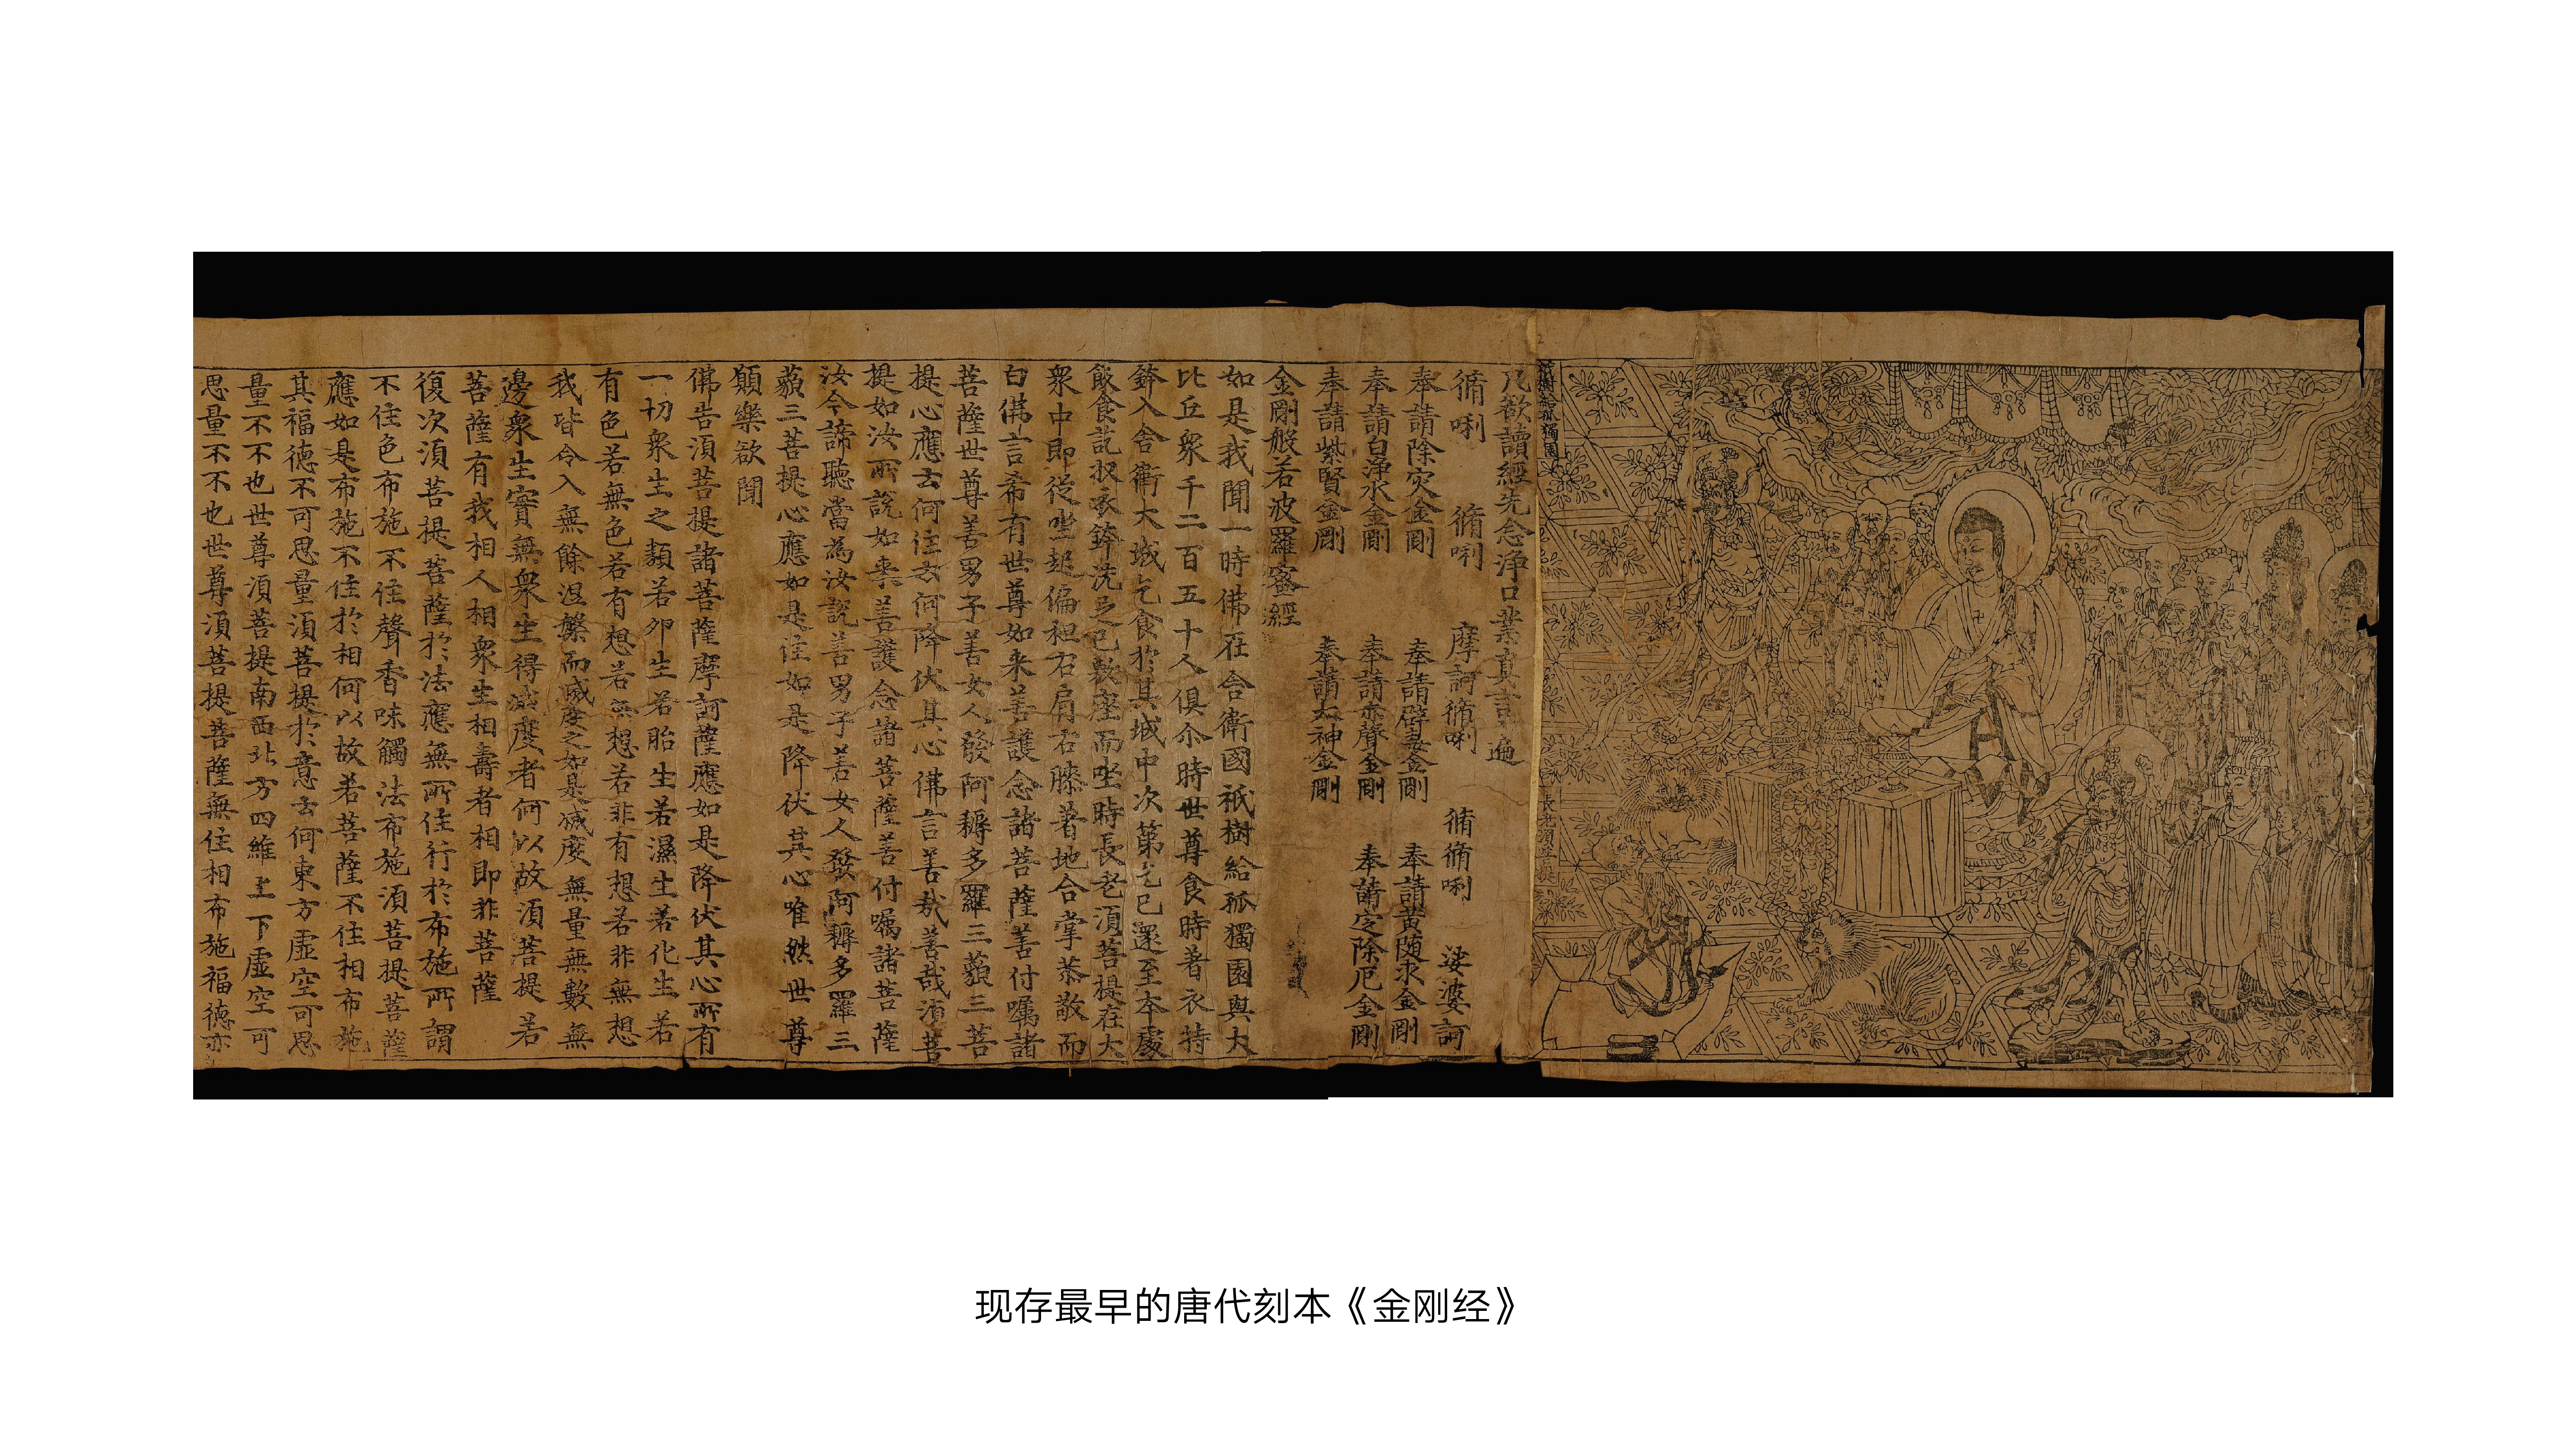 祇樹給孤獨園
長老須菩提
凡欲讀經先念淨口業真言一遍
脩唎 脩唎 摩訶脩唎 脩脩唎 娑婆訶
奉請除灾金剛 奉請辟毒金剛 奉請黃随求金剛
奉請白淨水金剛 奉請赤聲金剛 奉請定除厄金剛
奉請紫賢金剛 奉請大神金剛
金剛般若波羅蜜經
如是我聞一時佛在舍衛國祇樹給孤獨園與大
比丘衆千二百五十人俱尒時世尊食時著衣持
鉢入舍衛大城乞食於其城中次第乞已還至本處
飯食訖収衣鉢洗足已敷座而坐時長老湏菩提在大
衆中即從坐起偏袒右肩右膝著地合掌恭敬而
白佛言希有世尊如来善護念諸菩薩善付囑諸
菩薩世尊善男子善女人發阿耨多羅三藐三菩
提心應云何住云何降伏其心佛言善㢤善哉湏菩
提如汝所說如来善護念諸菩薩善付囑諸菩薩
汝今諦聽當為汝說善男子善女人發阿耨多羅三
藐三菩提心應如是住如是降伏其心唯然世尊
願樂欲聞
佛告湏菩提諸菩薩摩訶薩應如是降伏其心所有
一切衆生之類若卵生若胎生若濕生若化生若
有色若無色若有想若無想若非有想若非無想
我皆令入無餘涅槃而滅度之如是滅度無量無數無
邊衆生實無衆生得滅度者何以故湏菩提若
菩薩有我相人相衆生相壽者相即非菩薩
復次湏菩提菩薩於法應無所住行於布施所謂
不住色布施不住聲香味觸法布施湏菩提菩薩
應如是布施不住於相何以故若菩薩不住相布施
其福德不可思量湏菩提於意云何東方虛空可思
量不不也世尊湏菩提南西北方四維上下虛空可
思量不不也世尊湏菩提菩薩無住相布施福德亦
现存最早的唐代刻本《金刚经》